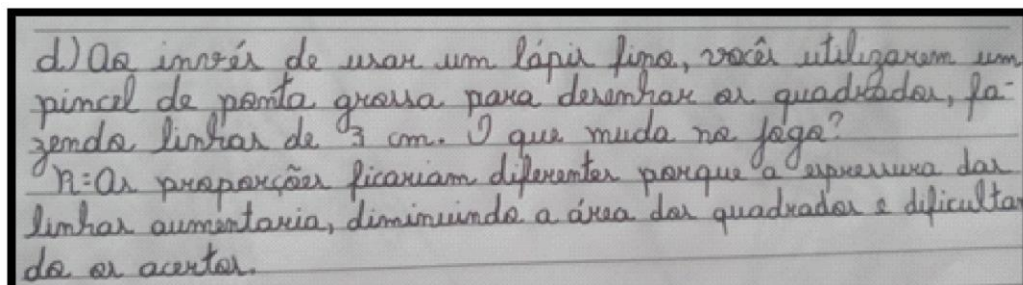 d) Ao invés de usar um lápis fino, vocês utilizarem um
pincel de ponta grossa para desenhar os quadrados, fa-
zendo linhas de 3 cm. O que muda no jogo?
R: As proporções ficariam diferentes porque a espressura das
linhas aumentaria, diminuindo a área dos quadrados e dificultan
do os acertos.